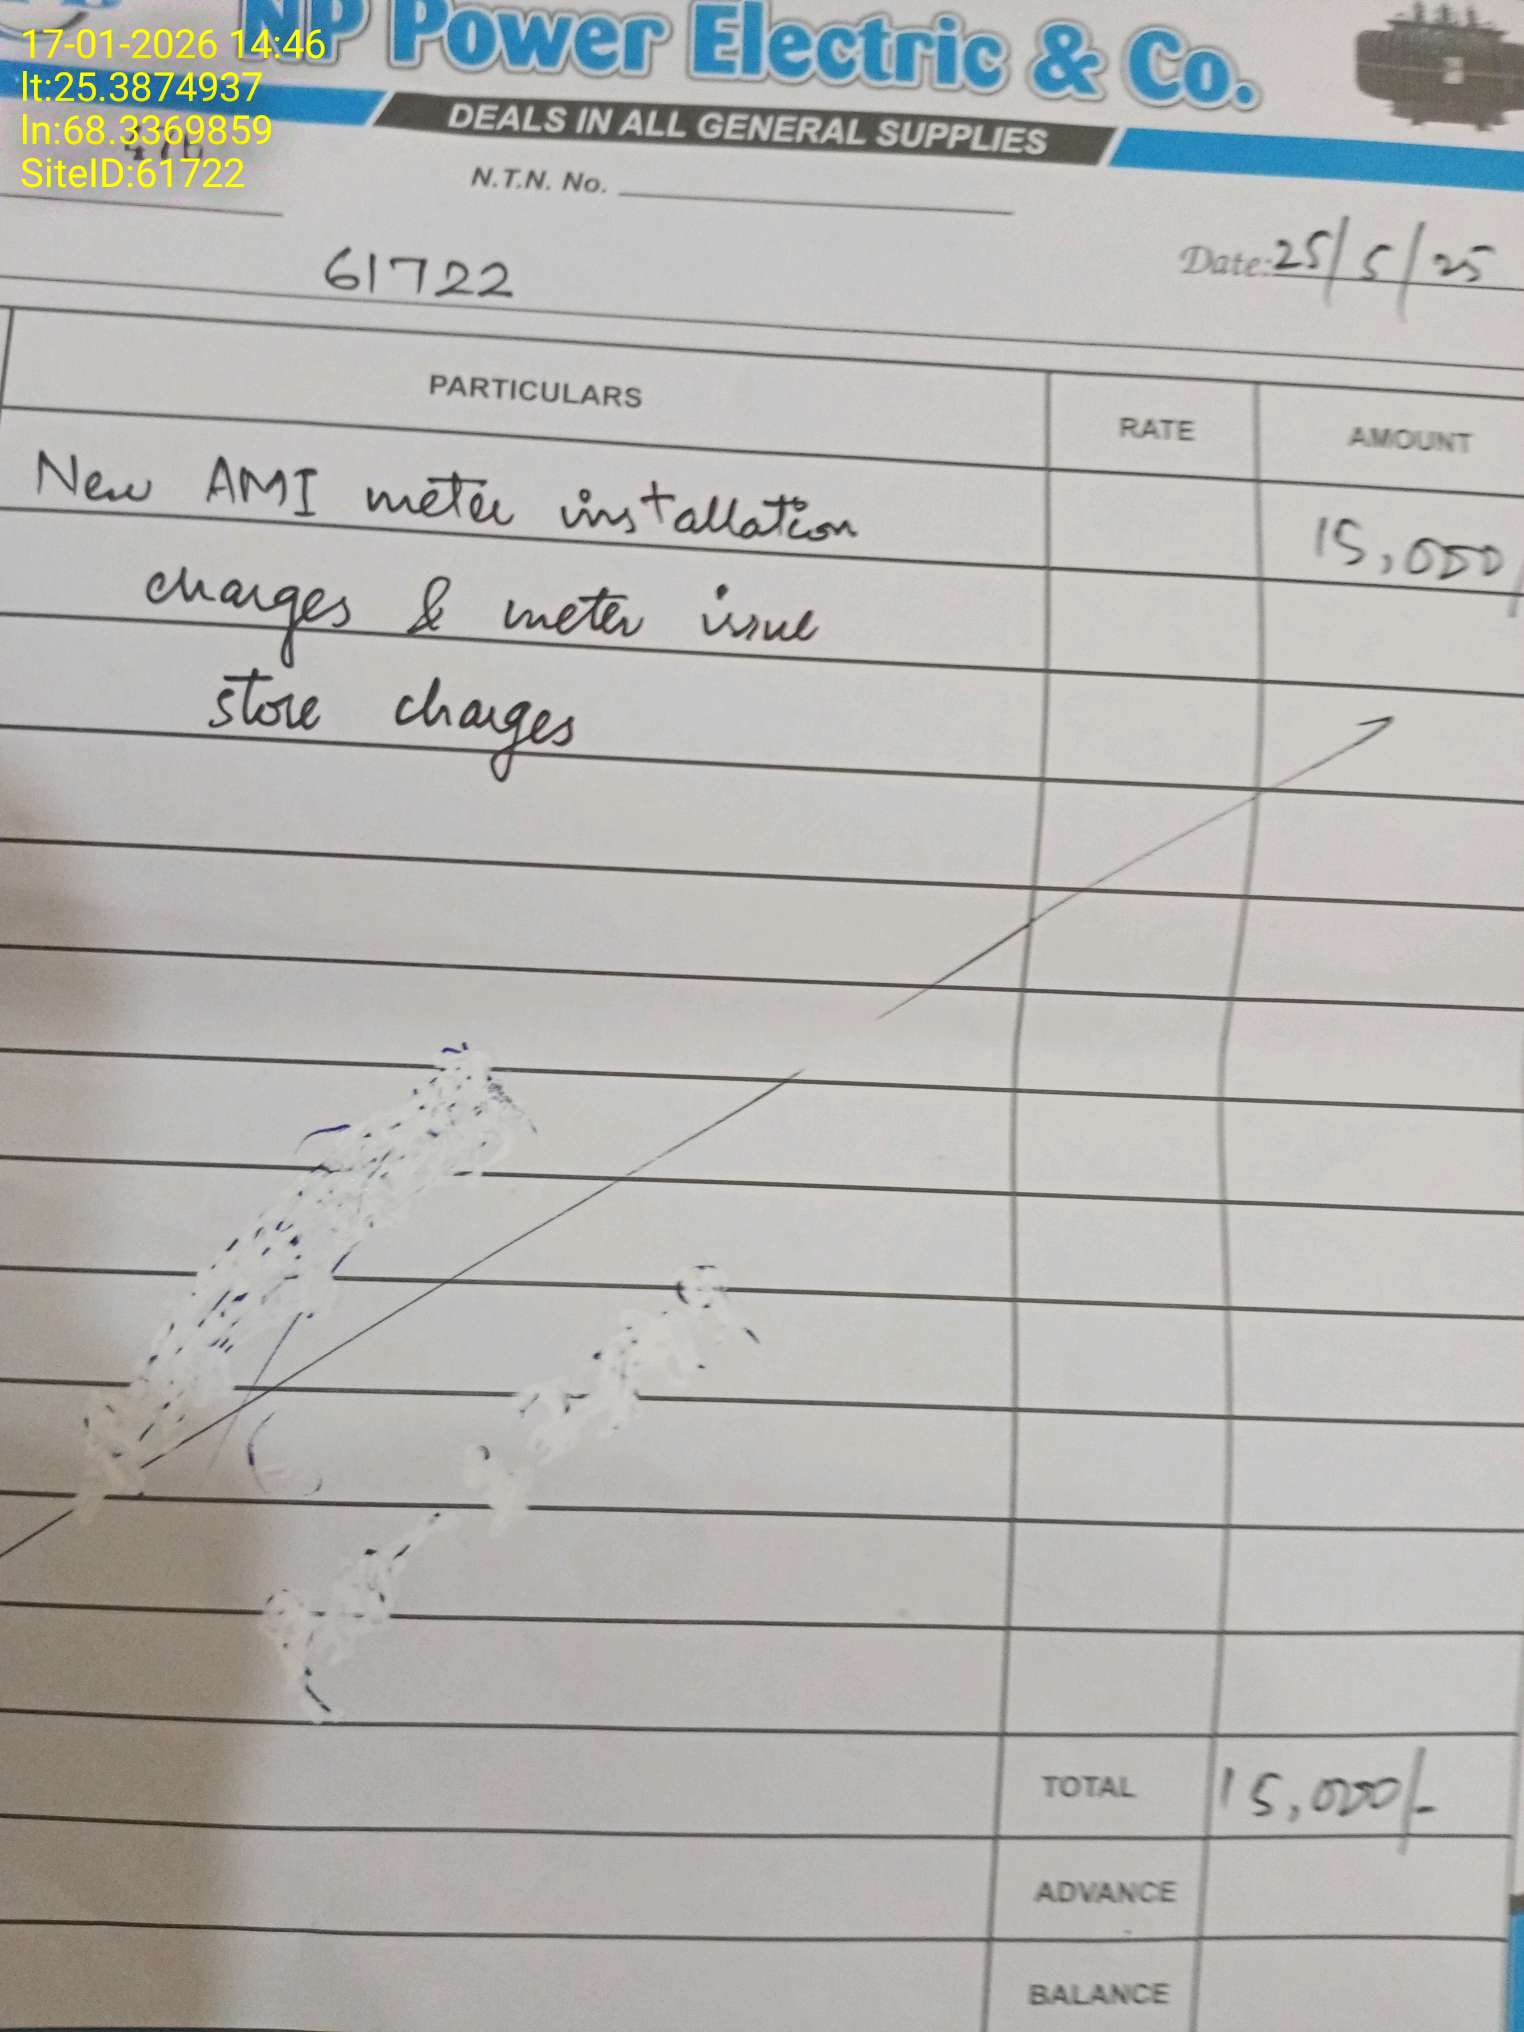 NP Power Electric & Co.
17-01-2026 14:46
lt:25.3874937
ln:68.3369859
SiteID:61722
DEALS IN ALL GENERAL SUPPLIES
N.T.N. No.
61722
Date: 25/5/25
PARTICULARS RATE AMOUNT
New AMI meter installation 15,000/
charges & meter issue
store charges
TOTAL 15,000/-
ADVANCE
BALANCE